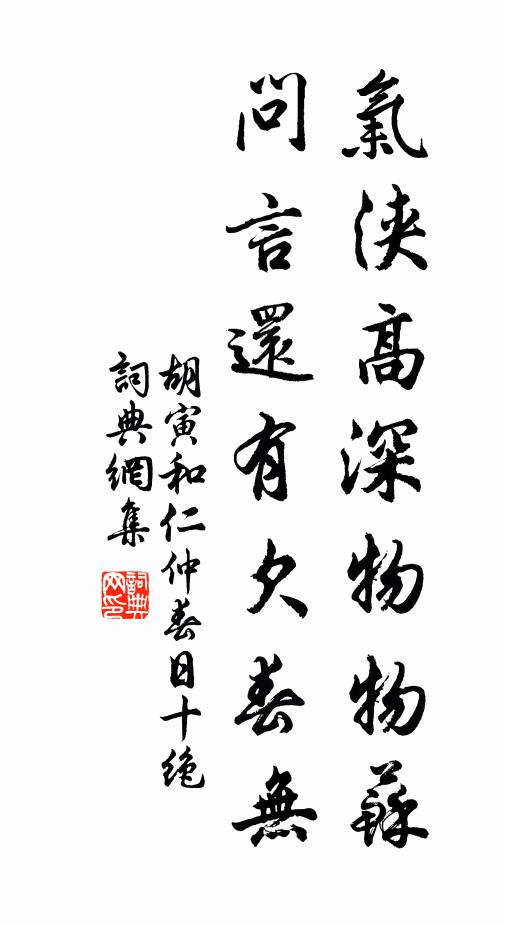 氣浹高深物物蘇
問言還有欠春無
胡寅和仁仲春日十絶
詞典網集
詞典網印